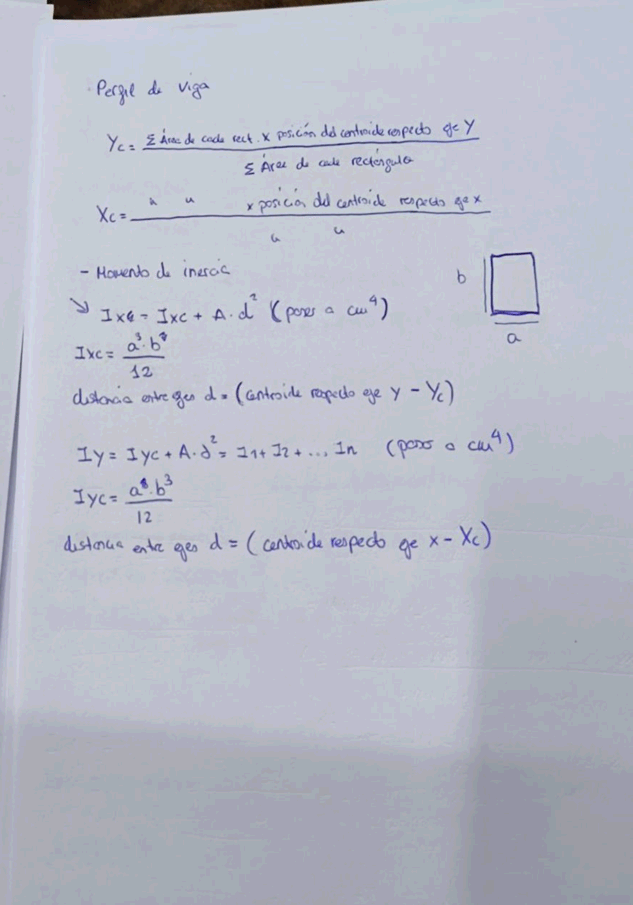 Perfil de viga
Yc = Σ Área de cada rect. x posición del centroide respecto eje Y
Σ Área de cada rectángulo
Xc = " " x posición del centroide respecto eje x
" "
- Momento de inercia
b
↘ Ixc = Ixc + A·d² (pasar a cm⁴)
a
Ixc = a³·b
12
distancia entre ejes d = (centroide respecto eje y - Yc)
Iy = Iyc + A·d² = I1 + I2 + ... In (pasar a cm⁴)
Iyc = a·b³
12
distancia entre ejes d = (centroide respecto eje x - Xc)